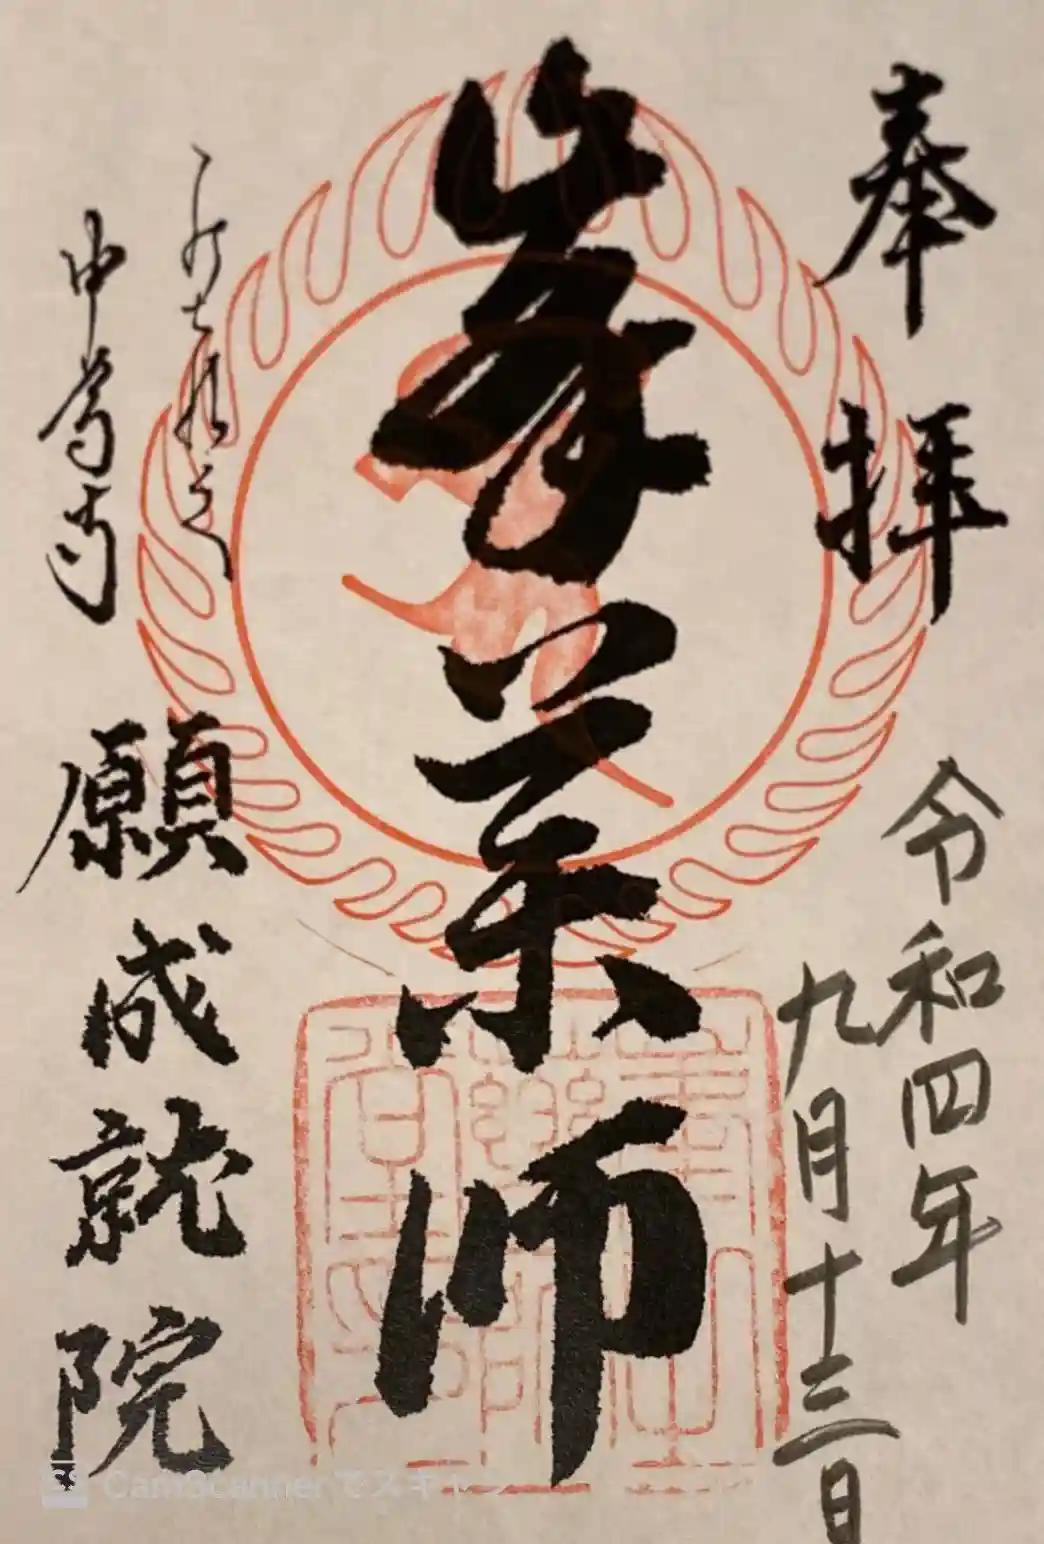 奉拝
令和四年
九月十三日
峯薬師
中尊寺
願成就院
CamScannerでスキャン